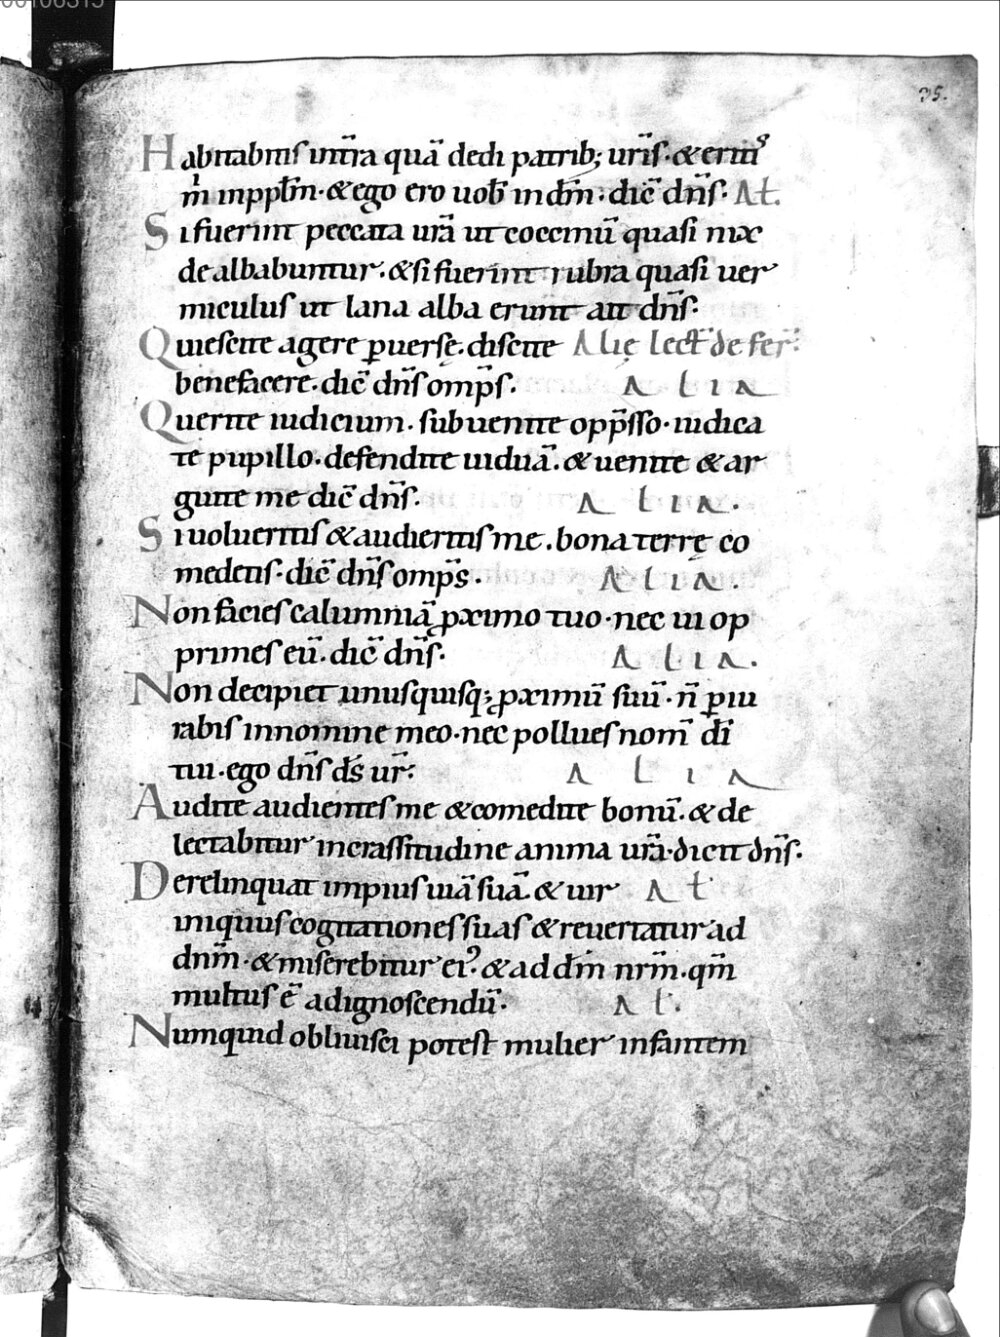 35.
Habitabitis intr̄a quā dedi patrib; ur̄is · & eritis
m̄ inppl̄m · & ego ero uob̄ in dm̄ : dic̄ dn̄s · Al.
Si fuerint peccata ur̄a ut coccinū quasi nix
de albabuntur · & si fuerint rubra quasi uer
miculus ut lana alba erunt ait dn̄s ·
Quiescite agere ꝑuerse · discite Alię lect̄ de fer̄ :
benefacere · dic̄ dn̄s omp̄s · ALIA
Querite iudicium · subuenite opp̄sso · iudica
te pupillo · defendite uiduā · & uenite & ar
guite me dic̄ dn̄s · ALIA ·
Si uolueritis & audieritis me . bona terrę co
medetis · dic̄ dn̄s omp̄s · ALIA ·
Non facies calumniā ꝓximo tuo · nec ui op
primes eū · dic̄ dn̄s · ALIA ·
Non decipiet unusquisq; ꝓximū suū · n̄ ꝑiu
rabis innomine meo · nec pollues nom̄ dī
tui · ego dn̄s ds̄ ur̄ : ALIA
Audite audientes me & comedite bonū · & de
lectabitur incrassitudine anima ur̄a · dicit dn̄s ·
Derelinquat impius uiā suā & uir Al
iniquus cogitationes suas & reuertatur ad
dnm̄ · & miserebitur ei᾽ · & ad dm̄ nrm̄ · qm̄
multus ē adignoscendū · Al.
Numquid obliuisci potest mulier infantem